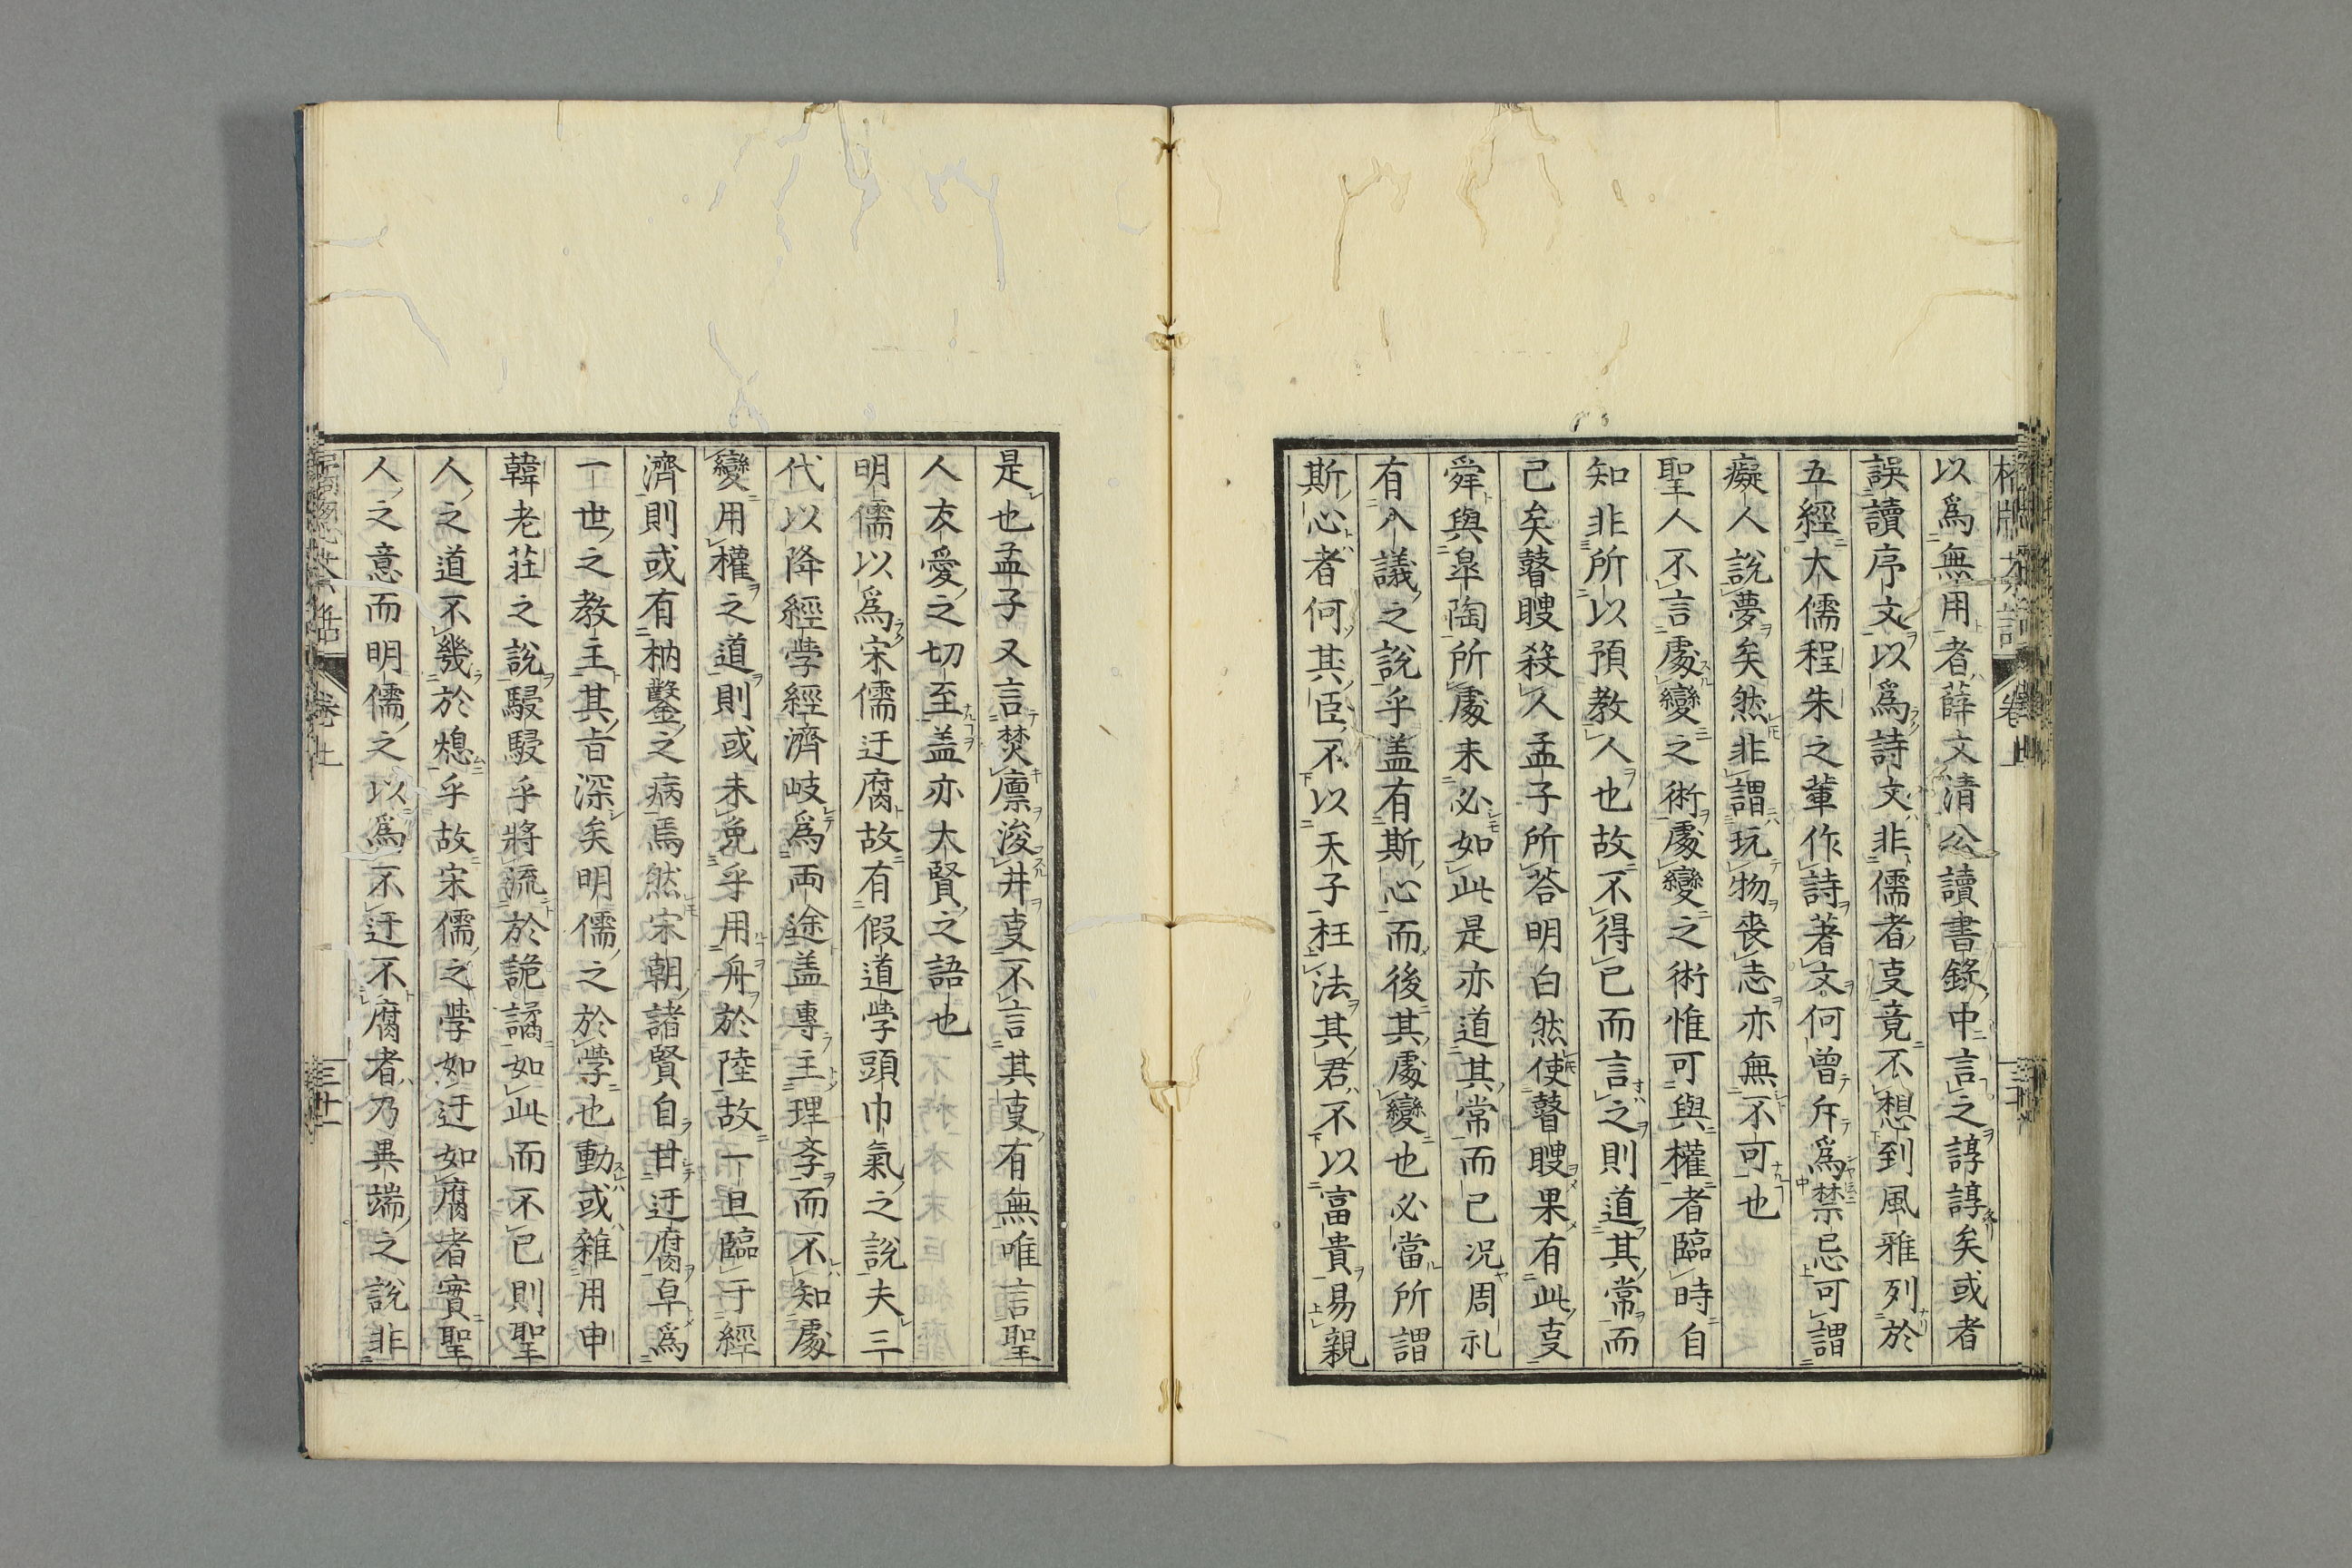 以爲無用者薛文清公讀書錄中言之諄諄矣或者
誤讀序文以爲詩文非儒者㕝竟不想到風雅列於
五經大儒程朱之輩作詩著文何曾斥爲禁忌可謂
癡人說夢矣然非謂玩物喪志亦無不可也
聖人不言處變之術處變之術惟可與權者臨時自
知非所以預教人也故不得已而言之則道其常而
已矣瞽瞍殺人孟子所答明白然使瞽瞍果有此㕝
舜與皐陶所處未必如此是亦道其常而已况周礼
有八議之說乎盖有斯心而後其處變也必當所謂
斯心者何其臣不以天子枉法其君不以富貴易親
是也孟子又言焚廩浚井㕝不言其㕝有無唯言聖
人友愛之切至盖亦大賢之語也
明儒以爲宋儒迂腐故有假道學頭巾氣之說夫三
代以降經學經濟岐爲両途盖專主理斈而不知處
變用權之道則或未免乎用舟於陸故一旦臨于經
濟則或有枘鑿之病焉然宋朝諸賢自甘迂腐卓爲
一世之教主其旨深矣明儒之於學也動或雜用申
韓老莊之說駸駸乎將流於詭譎如此而不已則聖
人之道不幾於熄乎故宋儒之學如迂如腐者實聖
人之意而明儒之以爲不迂不腐者乃異端之說非